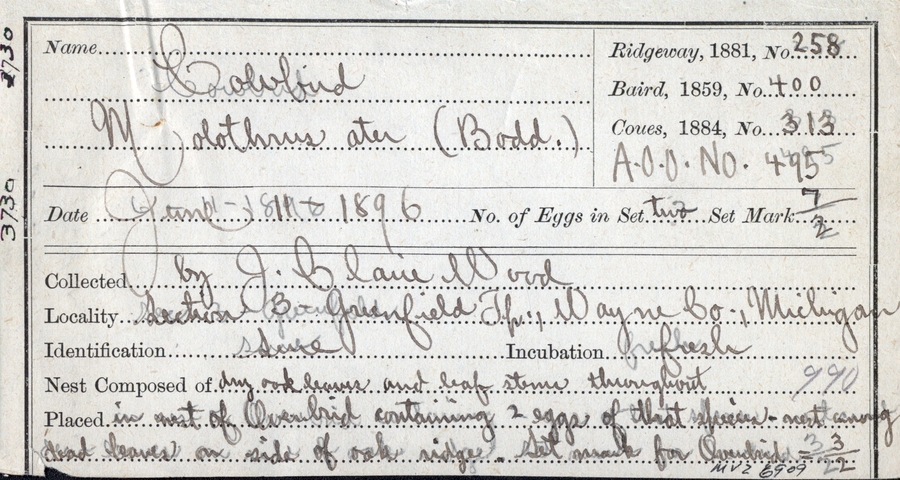 Name Cowbird
Molothrus ater (Bodd.)
Ridgeway, 1881, No. 258
Baird, 1859, No. 400
Coues, 1884, No. 313
A.O.U. No. 495
Date June 1896 No. of Eggs in Set two Set Mark 7/2
Collected by J. Claire Wood
Locality Section 3- Greenfield Tp., Wayne Co., Michigan
Identification sure Incubation fresh
Nest Composed of dry oak leaves and leaf stems throughout 990
Placed in nest of Ovenbird containing 2 eggs of that species - nest among
dead leaves on side of oak ridge. Set mark for Ovenbird = 3/22
MVZ 6909
3730
3730